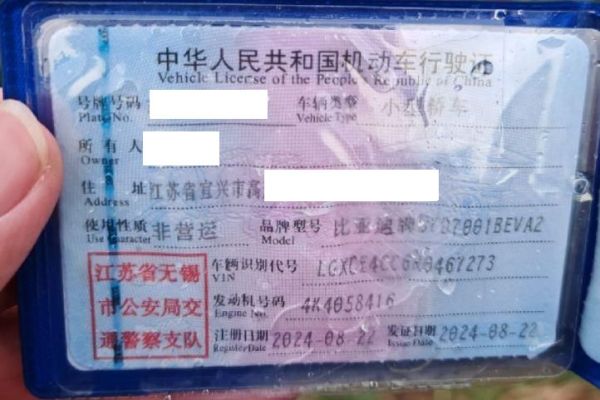 中华人民共和国机动车行驶证
Vehicle License of the People's Republic of China
号牌号码 车辆类型 小型轿车
Plate No. Vehicle Type
所有人
Owner
住址 江苏省宜兴市高
Address
使用性质 非营运 品牌型号 比亚迪牌 BEVA2
Use Character Model
江苏省无锡 车辆识别代号
VIN
市公安局交 发动机号码 4K4058416
Engine No.
通警察支队 注册日期 2024-08-22 发证日期 2024-08-22
Register Date Issue Date